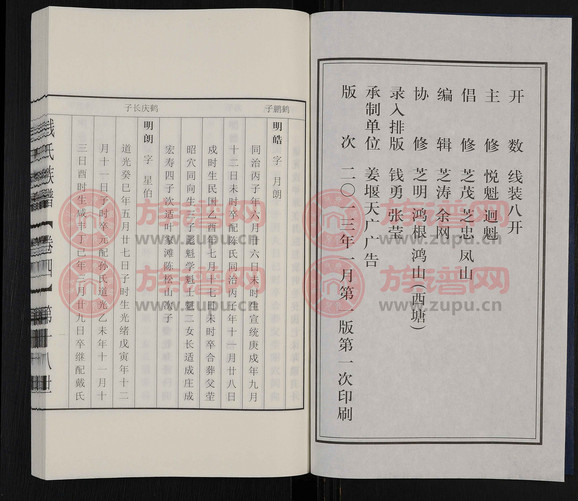 开 数 线装八开
主 修 悦魁 迥魁
倡 修 芝茂 芝忠 凤山
编 辑 芝涛 余网
协 修 芝明 鸿根 鸿山(西塘)
录入排版 钱勇 张莹
承制单位 姜堰天广广告
版 次 二〇一三年一月第一版第一次印刷
鹤鹏子
明皓 字 月朗
同治丙子年六月廿六日未时生宣统庚戌年九月
十二日未时卒配陈氏同治丙子年十一月廿八日
戌时生民国乙酉年七月十七日未时卒合葬父茔
昭穴同向生二子逊魁学魁生二女长适成庄成
宏寿四子次适叶甸滩陈松山次子
鹤庆长子
明朗 字 星伯
道光癸巳年五月廿七日子时生光绪戊寅年十二
月十一日子时卒元配孙氏道光乙未年十一月十
三日酉时生咸丰丁巳年二月廿九日卒继配戴氏
钱氏族谱【卷四】第十八世
族谱网
www.zupu.cn
族谱网
www.zupu.cn
族谱网
www.zupu.cn
族谱网
www.zupu.cn